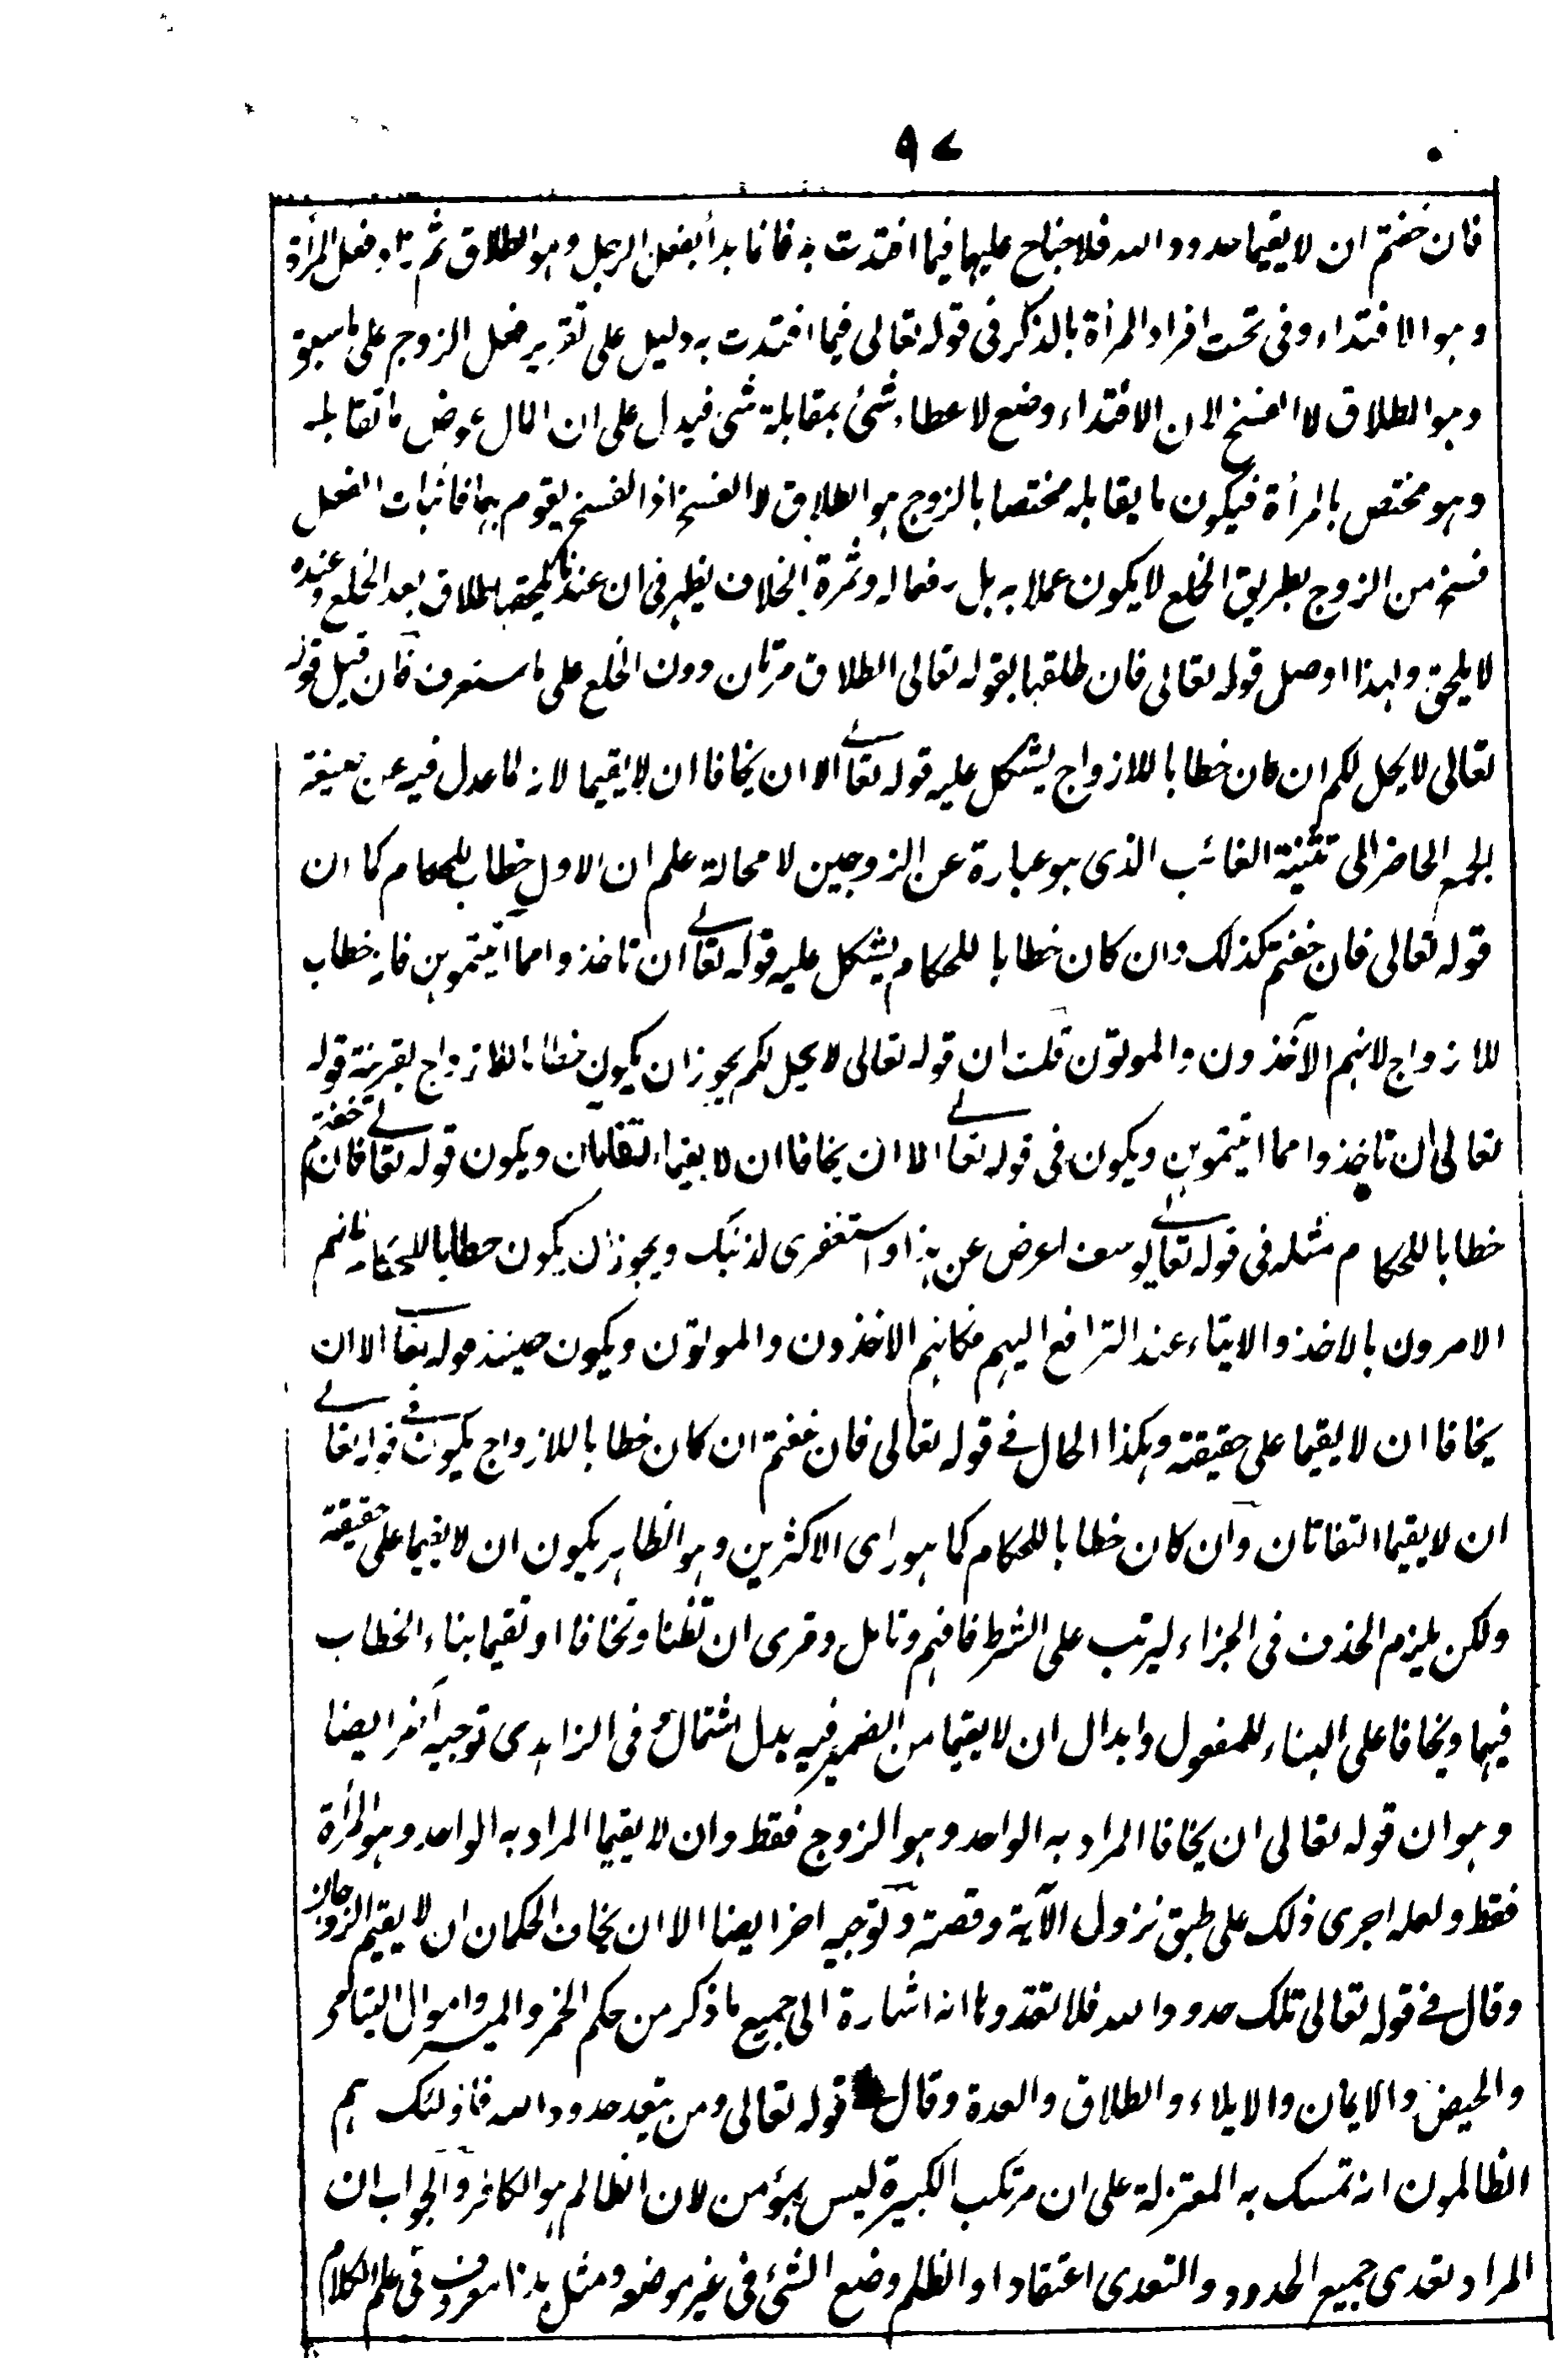 ٩٧
فان خفتم ان لا يقيما حدود الله فلا جناح عليهما فيما افتدت به فانا بدأ بفعل الرجل وهو الطلاق ثم زاد فعل المرأة
وهو الافتداء وفى تحت افراد المرأة بالذكر فى قوله تعالى فيما افتدت به دليل على تقرير فعل الزوج على ما سبق
وهو الطلاق لا الفسخ لان الافتداء وضع لاعطاء شئ بمقابلة شئ فيدل على ان المال عوض ما تقابله
وهو مختص بالمرأة فيكون ما يقابله مختصا بالزوج هو الطلاق لا الفسخ اذ الفسخ يقوم بهما فاثبات الفعل
فسخ من الزوج بطريق الخلع لا يكون عملا به بل رفعا له وثمرة الخلاف يظهر فى ان عندنا يلحقها الطلاق بعد الخلع وعنده
لا يلحق ولهذا اوصل قوله تعالى فان طلقها بقوله تعالى الطلاق مرتان دون الخلع على ما ستعرف فان قيل قوله
تعالى لا يحل لكم ان كان خطابا للازواج يشكل عليه قوله تعالے الا ان يخافا ان لا يقيما لانه لما عدل فيه عن صيغة
الجمع الحاضر الى تثنية الغائب الذى هو عبارة عن الزوجين لا محالة علم ان الاول خطاب للحكام كما ان
قوله تعالى فان خفتم كذلك وان كان خطابا للحكام يشكل عليه قوله تعالے ان تاخذوا مما اتيتموهن فانه خطاب
للازواج لانهم الآخذون والموتون قلت ان قوله تعالى لا يحل لكم يجوز ان يكون خطابا للازواج بقرينة قوله
تعالى ان تاخذوا مما اتيتموهن ويكون فى قوله تعالے الا ان يخافا ان لا يقيما التفاتان ويكون قوله تعالے فان خفتم
خطابا للحكام مثله فى قوله تعالے يوسف اعرض عن هذا واستغفرى لذنبك ويجوز ان يكون خطابا للحكام لانهم
الامرون بالاخذ والايتاء عند الترافع اليهم فكانهم الاخذون والموتون ويكون حينئذ قوله تعالے الا ان
يخافا ان لا يقيما على حقيقته وهكذا الحال فے قوله تعالى فان خفتم ان كان خطابا للازواج يكون فے قوله تعالے
ان لا يقيما التفاتان وان كان خطابا للحكام كما هو راى الاكثرين وهو الظاهر يكون ان لا يقيما على حقيقته
ولكن يلزم الحذف فى الجزاء ليرتب على الشرط فافهم وتامل وقرى ان تظنا وتخافا او تقيما بناء الخطاب
فيهما ويخافا على البناء للمفعول وابدال ان لا يقيما من الضمير فيه بدل اشتمال و فى الزاهدى توجيه آخر ايضا
وهو ان قوله تعالى ان يخافا المراد به الواحد وهو الزوج فقط وان لا يقيما المراد به الواحد وهو المرأة
فقط ولعله اجرى ذلك على طبق نزول الآية وقصته وتوجيه اخر ايضا الا ان يخاف الحكمان ان لا يقيم الزوجان
وقال فے قوله تعالى تلك حدود الله فلا تعتدوها انه اشارة الى جميع ما ذكر من حكم الخمر والميسر واموال اليتامى
والحيض والايمان والايلاء والطلاق والعدة وقال قوله تعالى ومن يتعد حدود الله فاولئك هم
الظالمون انه تمسك به المعتزلة على ان مرتكب الكبيرة ليس بمؤمن لان الظالم هو الكافر والجواب ان
المراد تعدى جميع الحدود والتعدى اعتقادا و الظلم وضع الشئ فى غير موضعه ومثل هذا معروف فى علم الكلام